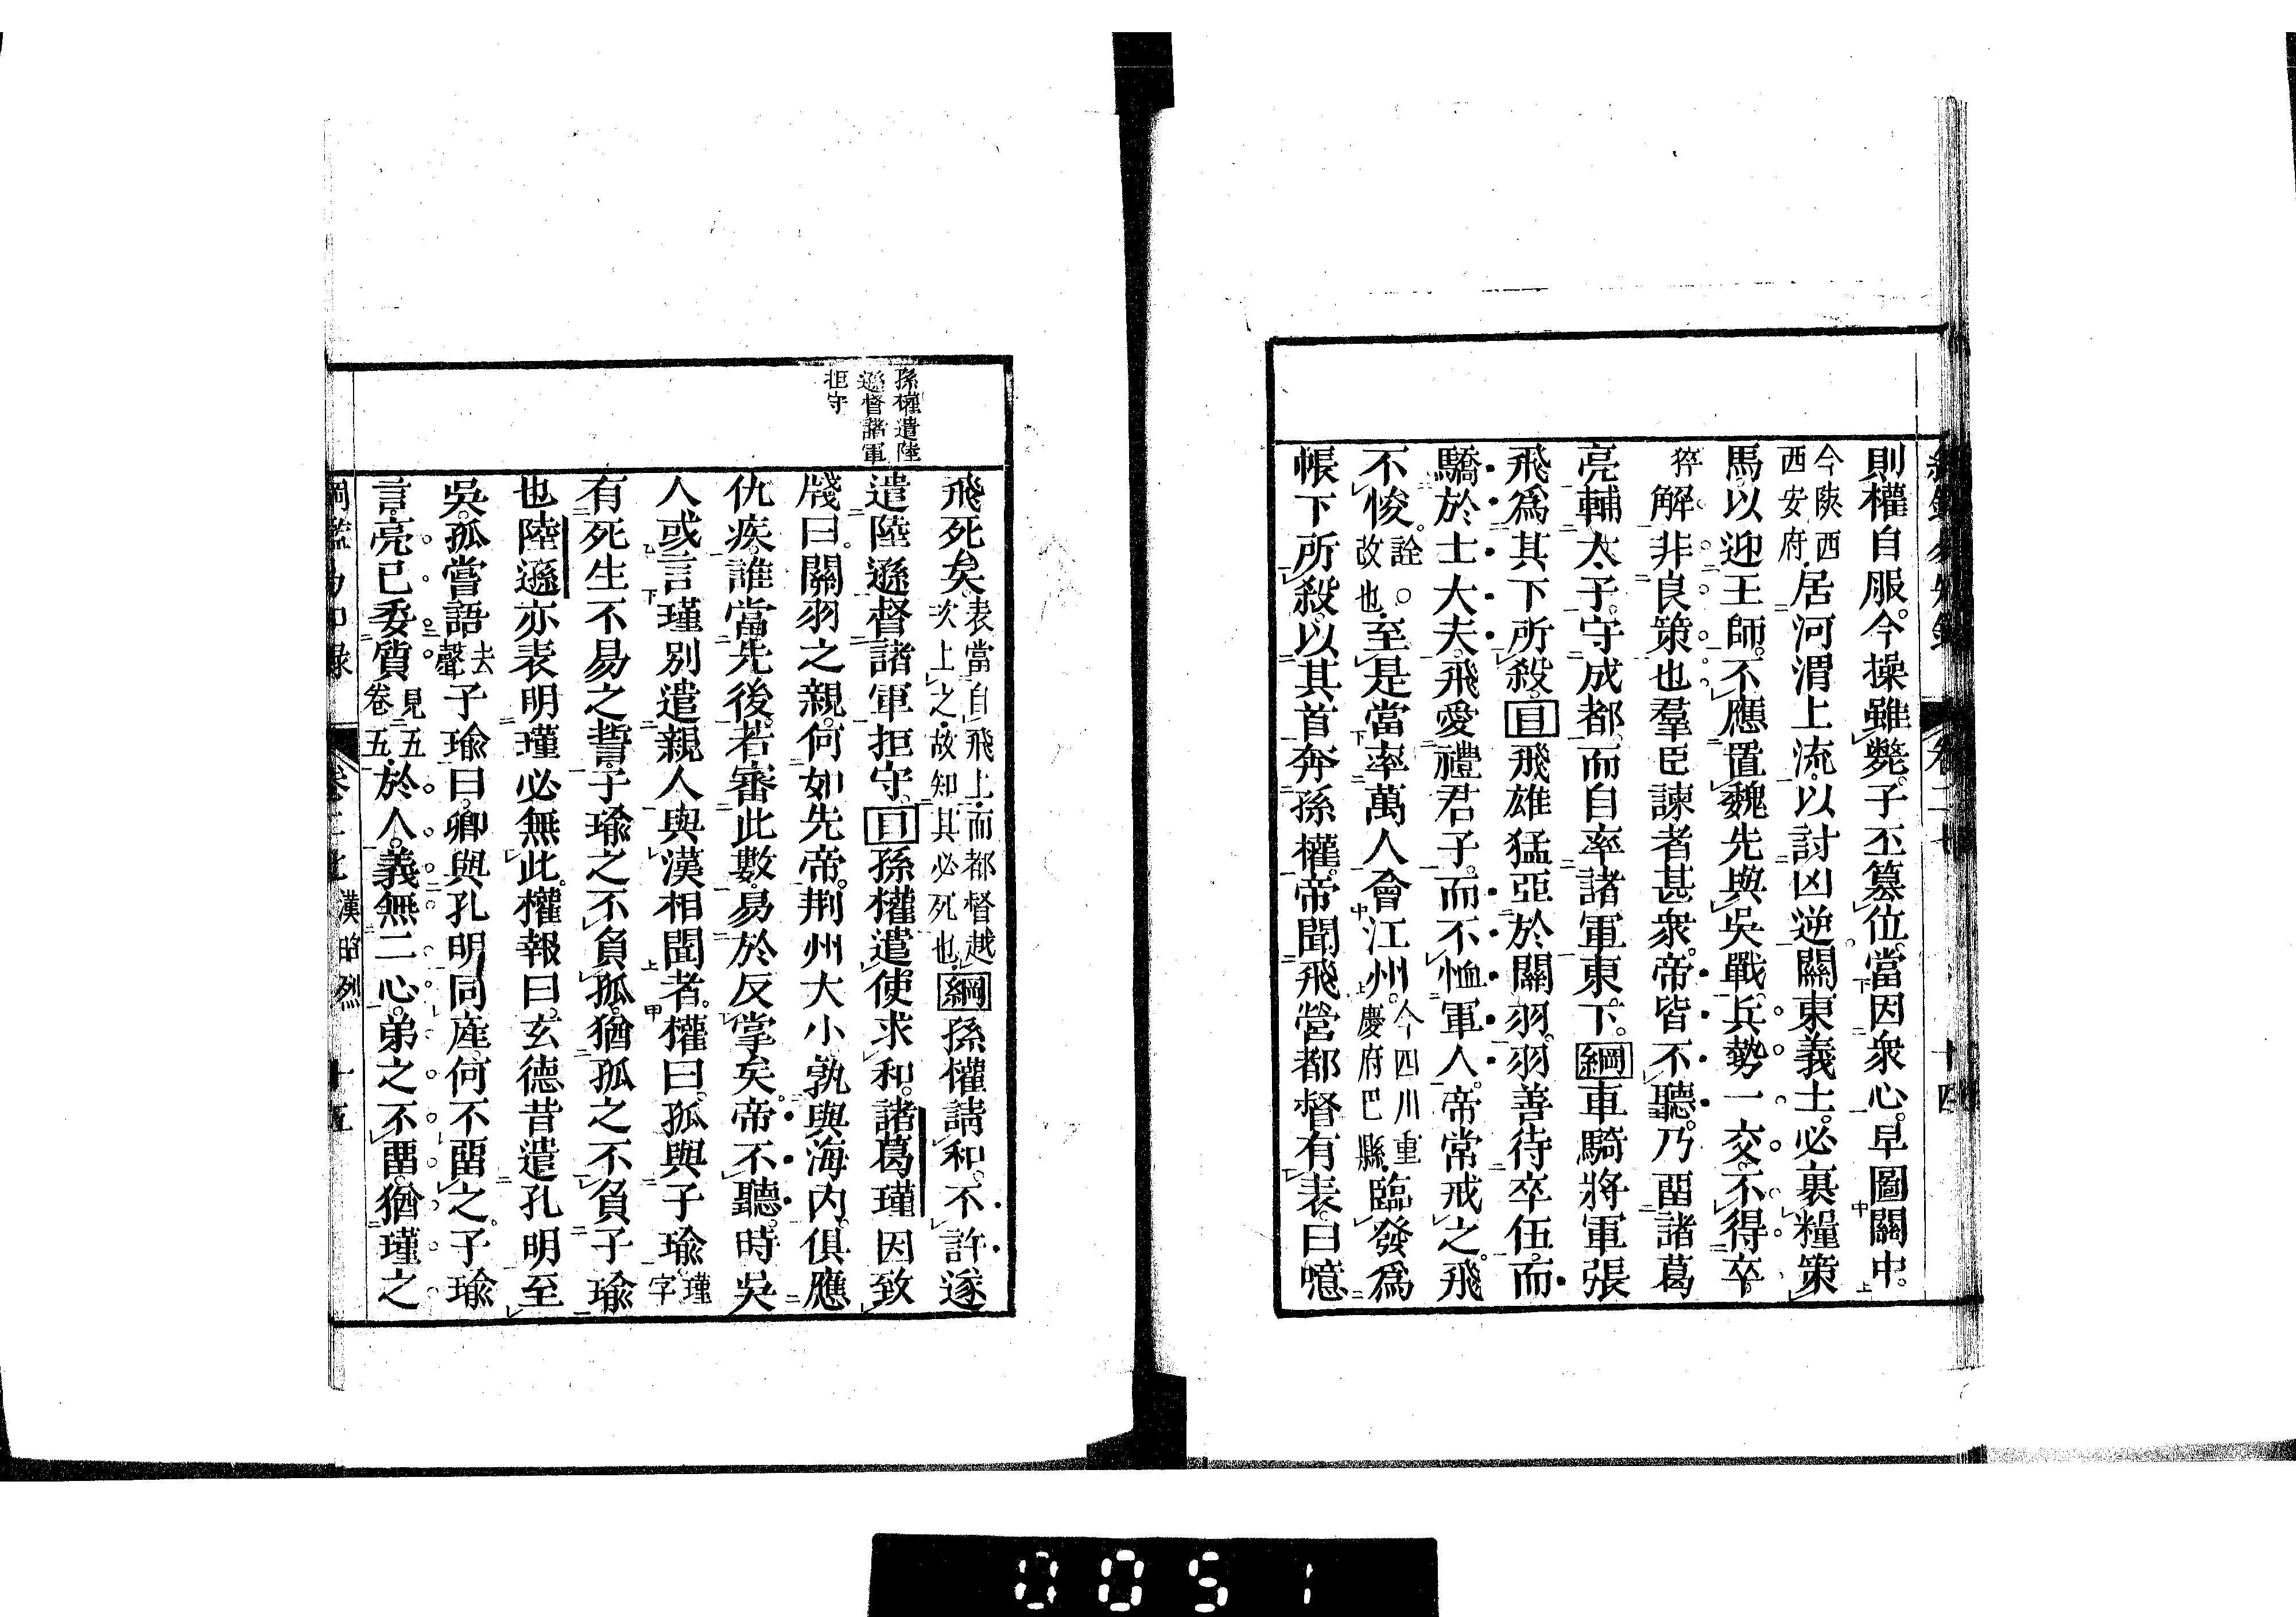 則權自服。今操雖斃。子丕篡位。當因衆心。早圖關中。
今陝西
西安府。居河渭上流。以討凶逆。關東義士。必裹糧策
馬。以迎王師。不應置魏。先與吳戰。兵勢一交。不得卒
猝解。非良策也。羣臣諫者甚衆。帝皆不聽。乃畱諸葛
亮輔太子。守成都。而自率諸軍東下。綱車騎將軍張
飛爲其下所殺。目飛雄猛亞於關羽。羽善待卒伍。而
驕於士大夫。飛愛禮君子。而不恤軍人。帝常戒之。飛
不悛。詮。
改也。至是當率萬人會江州。今四川重
慶府巴縣。臨發爲
帳下所殺。以其首奔孫權。帝聞飛營都督有表。曰噫。
十四
孫權遣陸
遜督諸軍
拒守
飛死矣。表當自飛上。而都督越
次上之。故知其必死也。綱孫權請和。不許。遂
遣陸遜督諸軍拒守。目孫權遣使求和。諸葛瑾因致
牋曰。關羽之親。何如先帝。荆州大小。孰與海內。俱應
仇疾。誰當先後。若審此數。易於反掌矣。帝不聽。時吳
人或言瑾別遣親人與漢相聞者。權曰。孤與子瑜。瑾
字
有死生不易之誓。子瑜之不負孤。猶孤之不負子瑜
也。陸遜亦表明瑾必無此。權報曰。玄德昔遣孔明至
吳。孤嘗語去
聲子瑜曰。卿與孔明同產。何不畱之。子瑜
言。亮已委質見五
卷五。於人。義無二心。弟之不畱。猶瑾之
漢昭烈
十五
0051